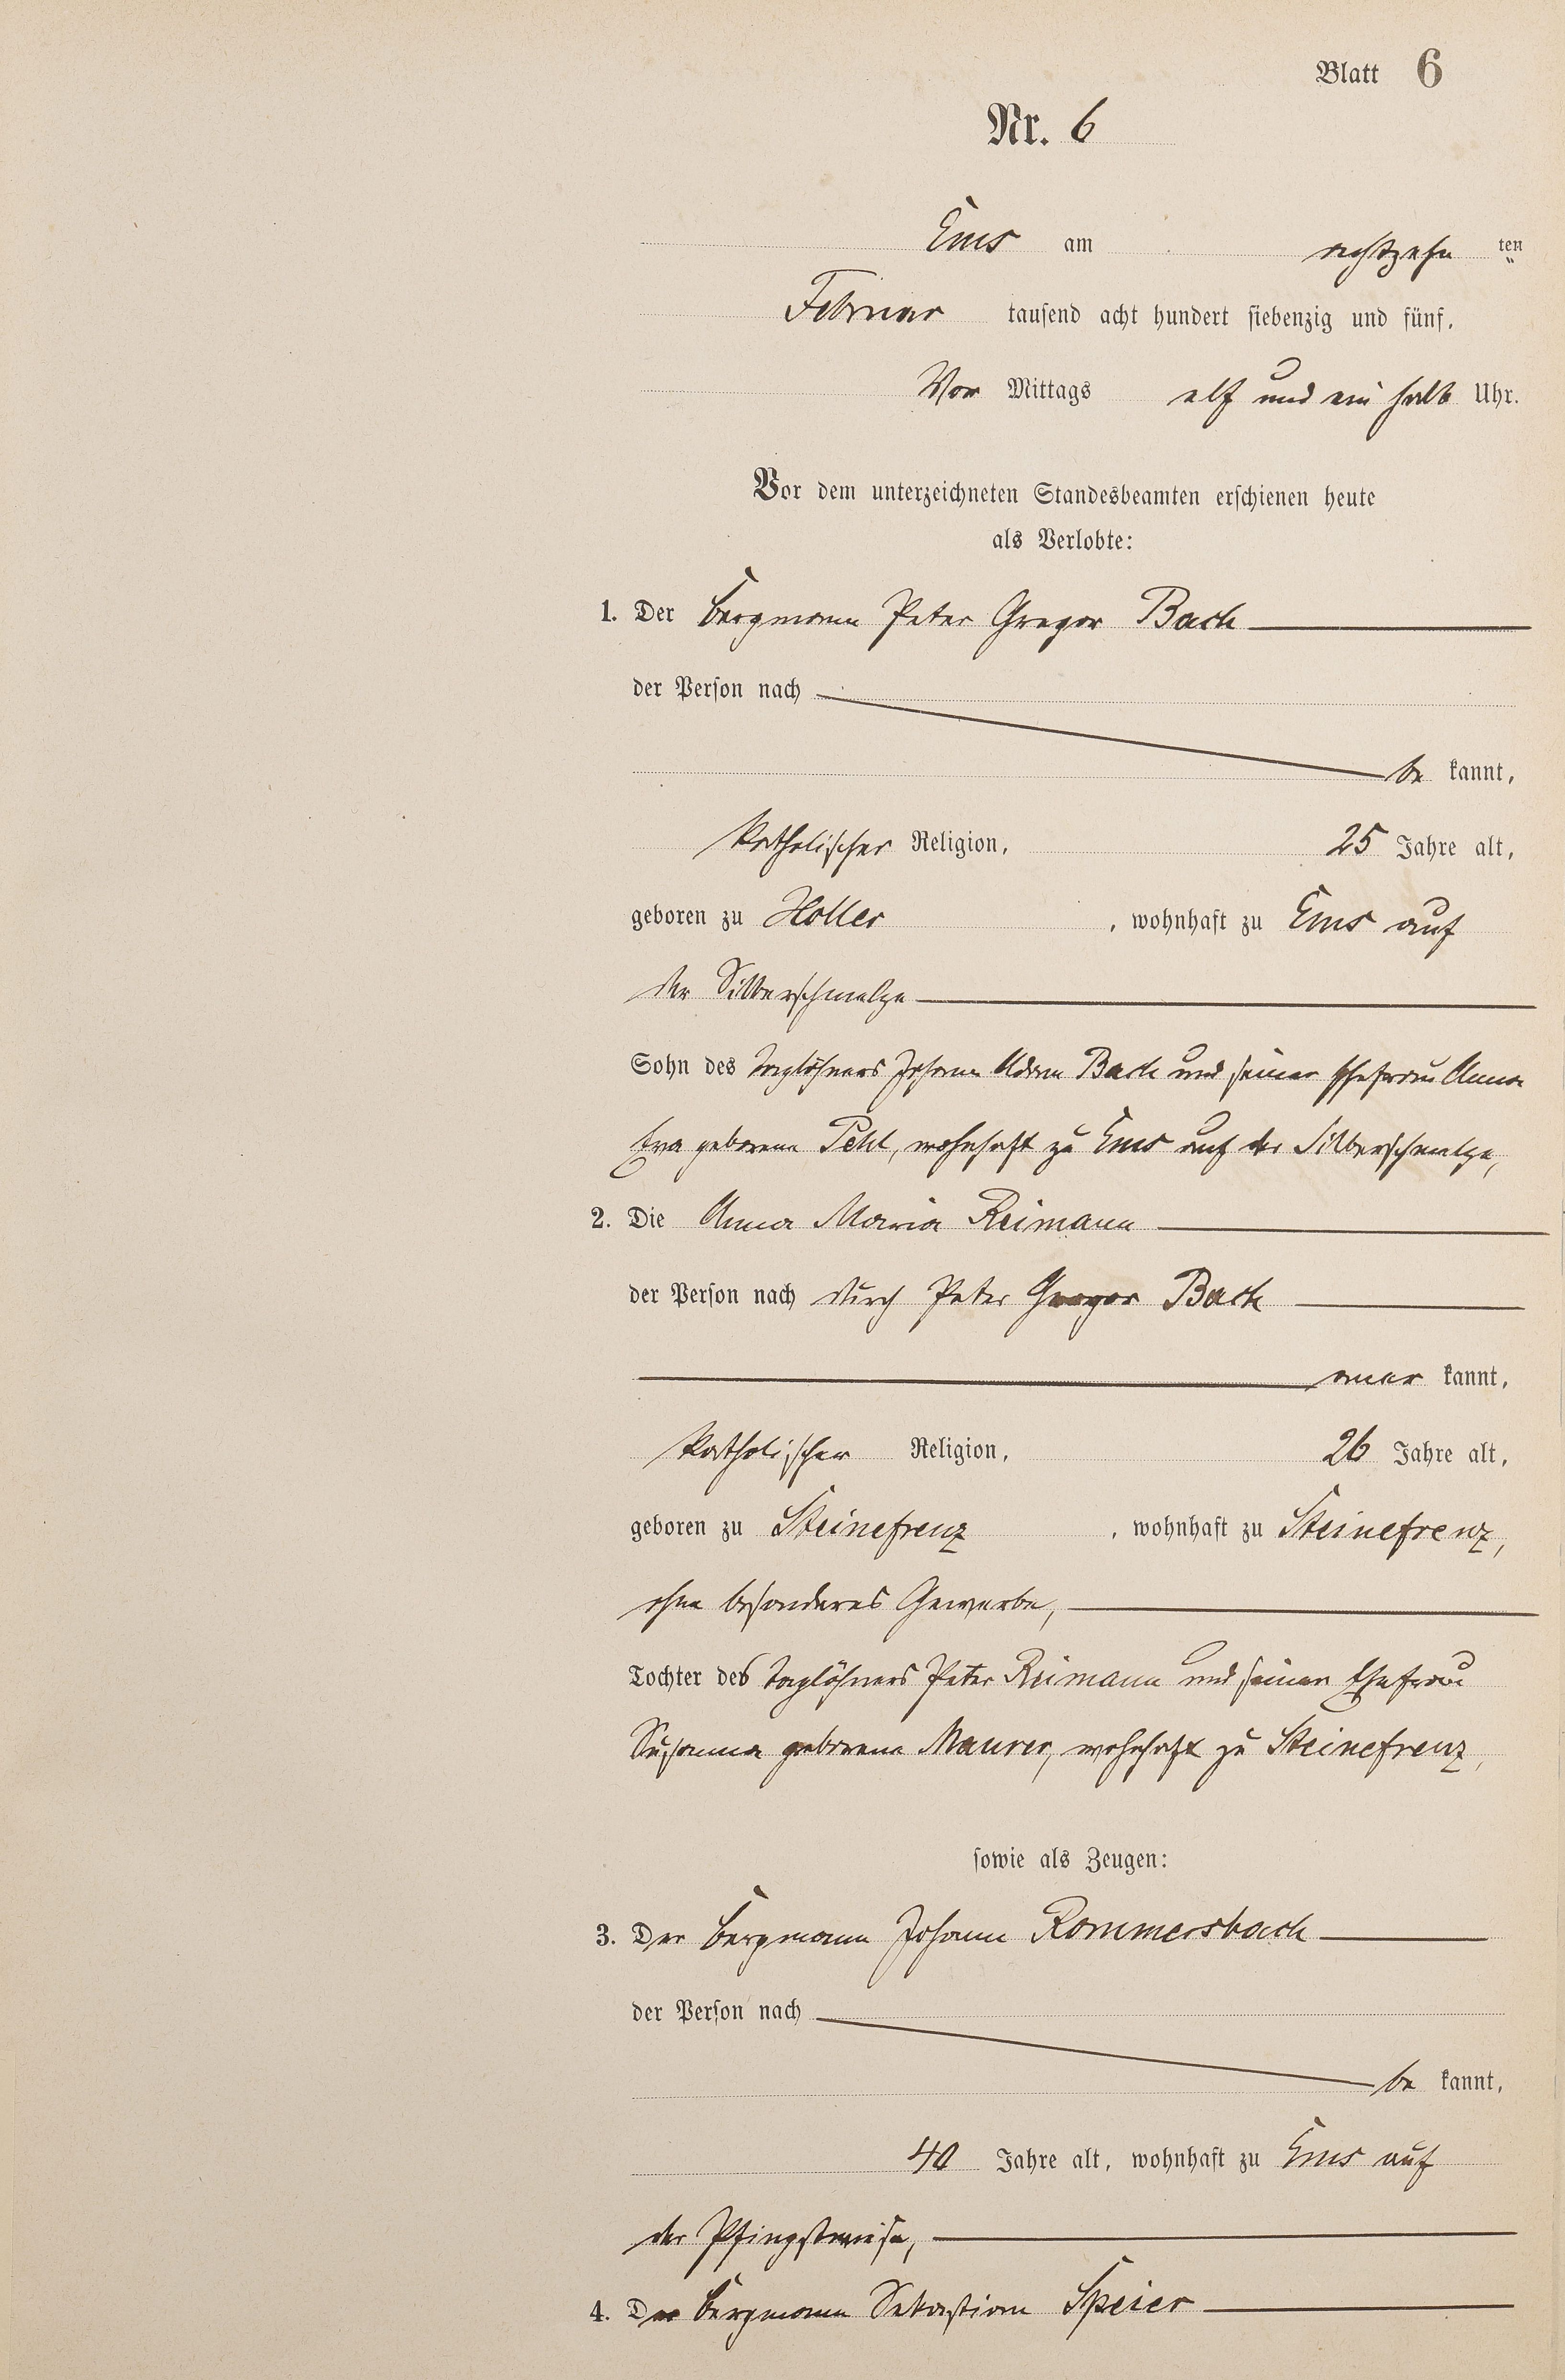 Blatt 6
Nr. 6
Ems am achtzehn ten
Februar tausend acht hundert siebenzig und fünf.
Vor Mittags elf und ein halb Uhr.
Vor dem unterzeichneten Standesbeamten erschienen heute
als Verlobte:
1. Der Bergmann Peter Gregor Bach
der Person nach
be kannt,
katholischer Religion, 25 Jahre alt,
geboren zu Holler, wohnhaft zu Ems auf
der Silberschmelze
Sohn des Taglöhners Johann Adam Bach und seiner Ehefrau Anna
Eva geborene Pehl, wohnhaft zu Ems auf der Silberschmelze,
2. Die Anna Maria Reimann
der Person nach durch Peter Gregor Bach
aner kannt,
katholischer Religion, 26 Jahre alt,
geboren zu Steinefrenz, wohnhaft zu Steinefrenz,
ohne besonderes Gewerbe,
Tochter des Taglöhners Peter Reimann und seiner Ehefrau
Susanna geborene Maurer, wohnhaft zu Steinefrenz,
sowie als Zeugen:
3. Der Bergmann Johann Rommersbach
der Person nach
be kannt,
40 Jahre alt, wohnhaft zu Ems auf
der Pfingstwiese,
4. Der Bergmann Sebastian Speier